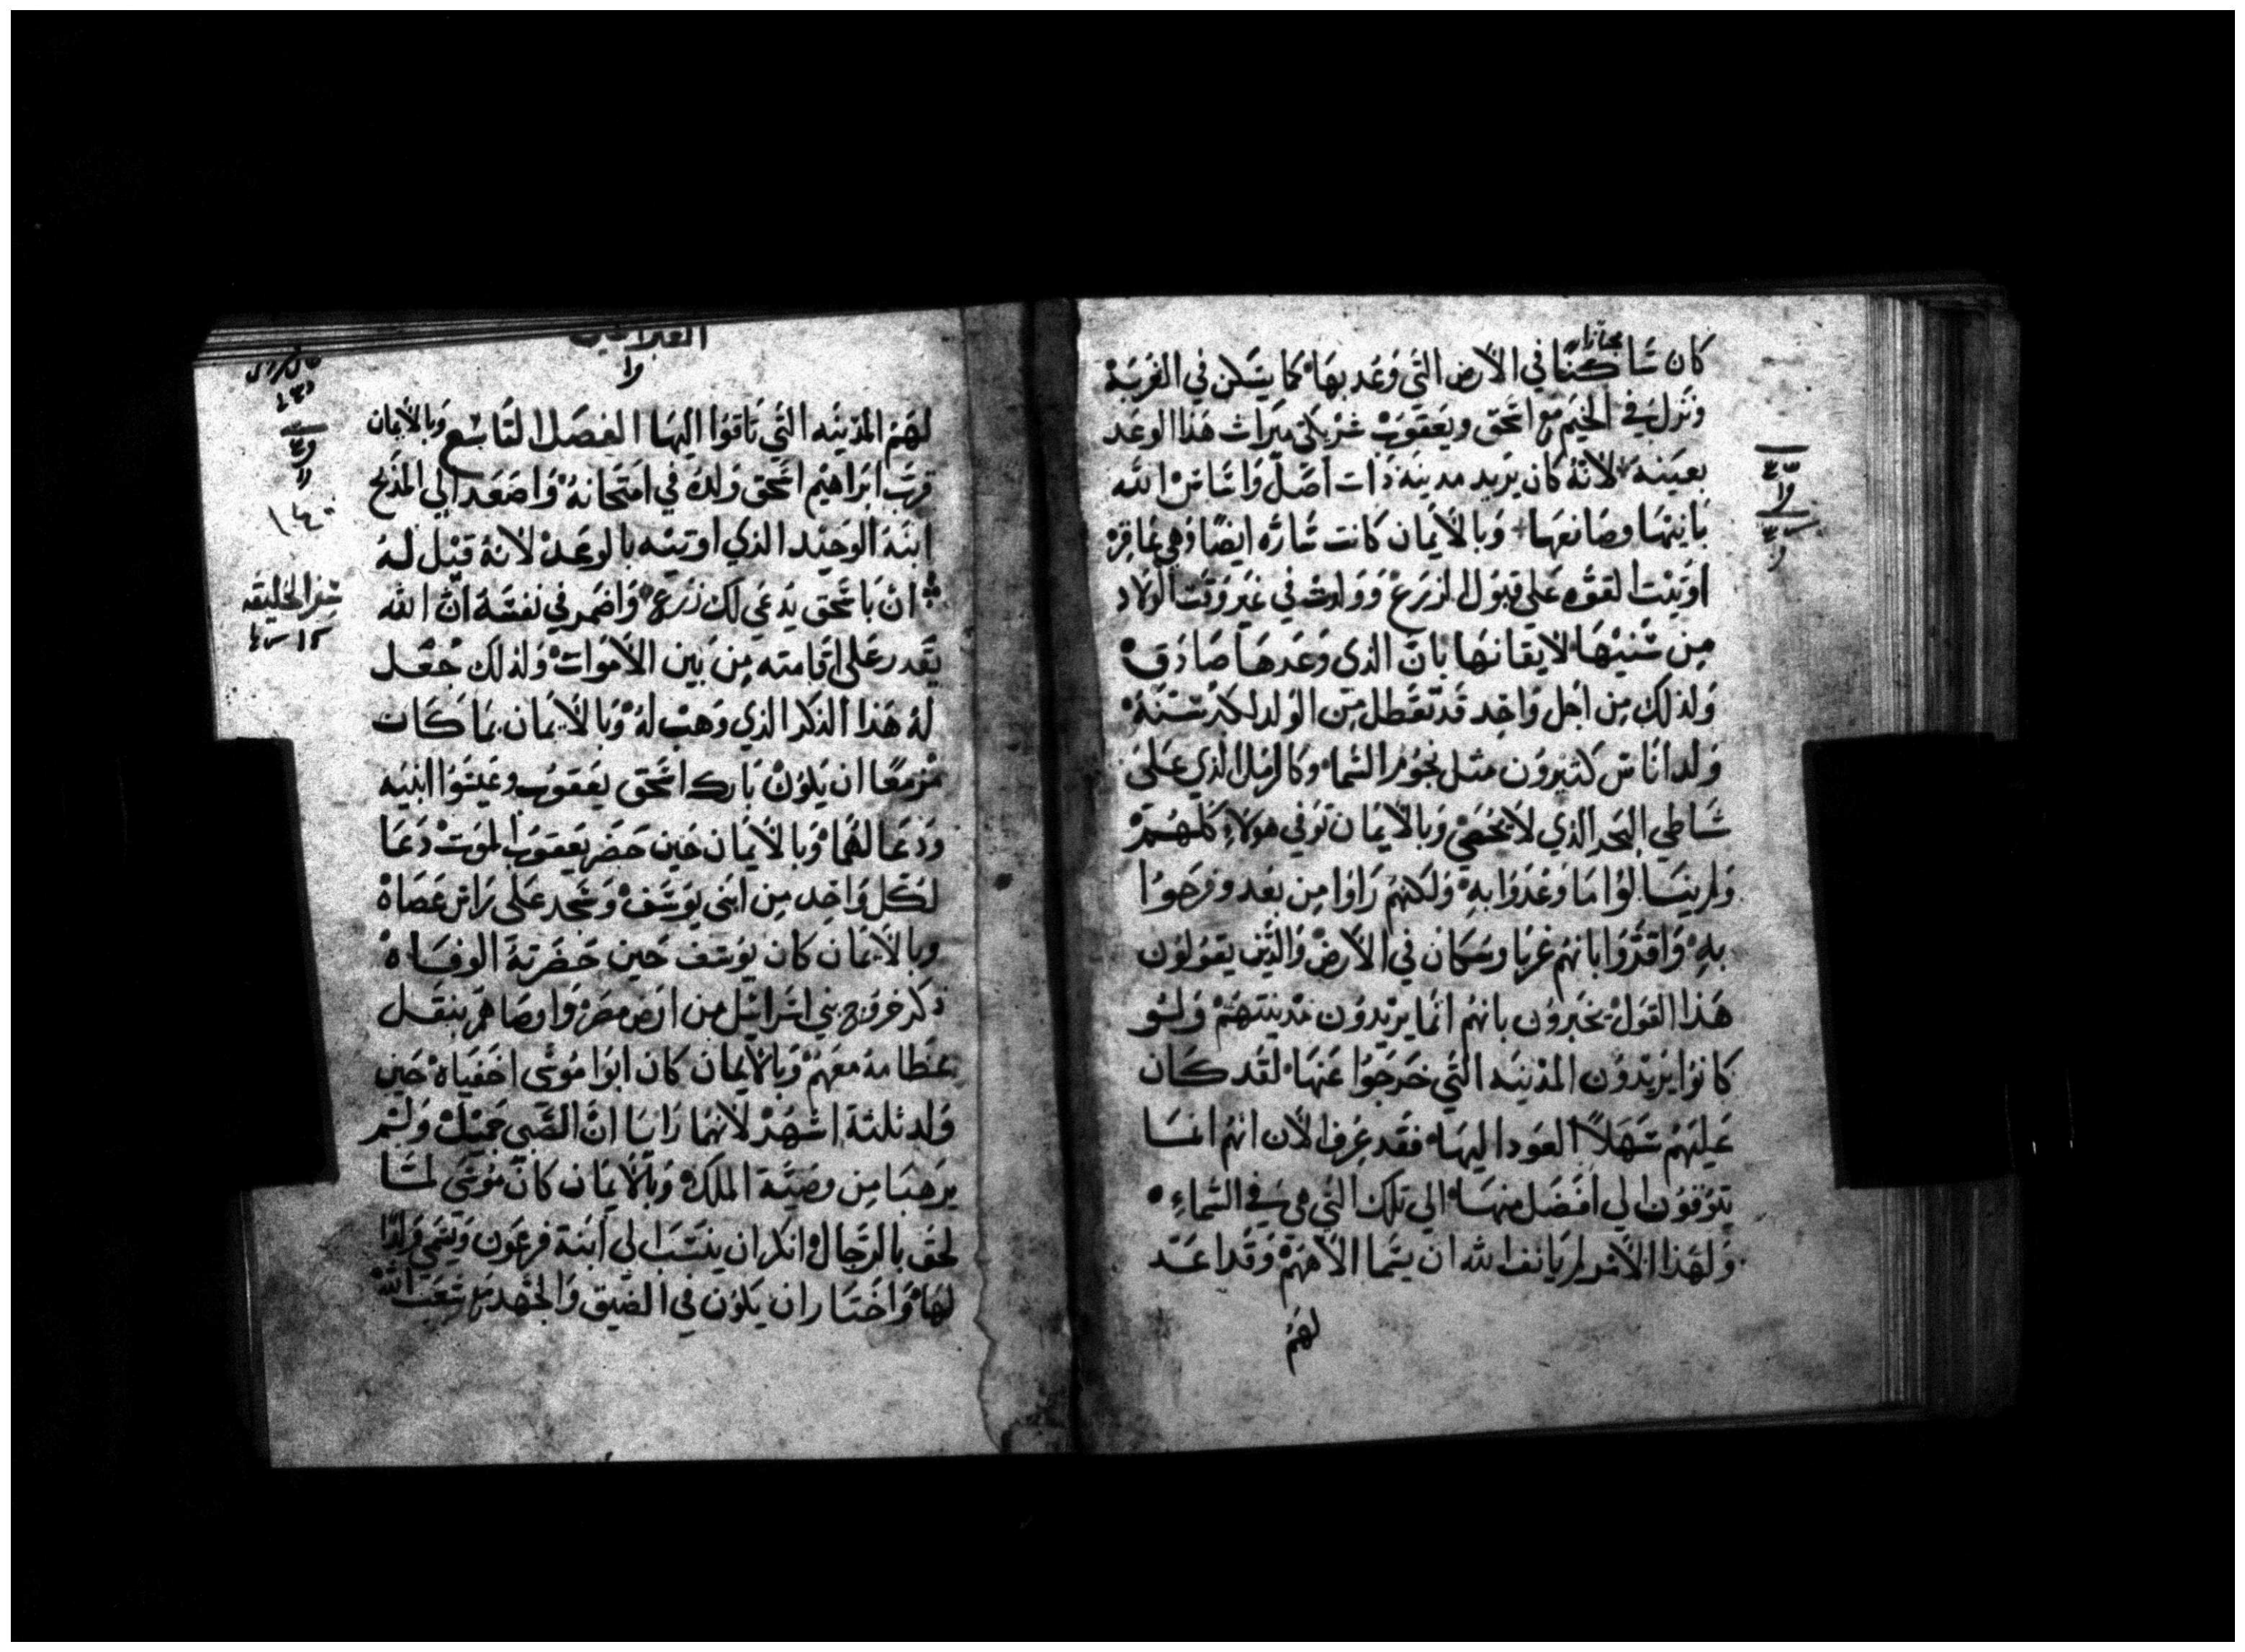 مجتازا
كان ساكنًا في الأرض التي وعد بها كما يسكن في الغربة
ونزل في الخيم مع اسحق ويعقوب شريكي ميراث هذا الوعد
بعينه لانه كان يريد مدينة ذات اصل واساس الله
بانيها وصانعها وبالايمان كانت ساره ايضا وهي عاقره
اوتيت القوه علي قبول الزرع وولدت في غير وقت الولاد
من سنيها لايقانها بان الذي وعدها صادق
ولذلك من اجل واحد قد تعطل من الولد لكبر سنه
ولد اناس كثيرون مثل نجوم السما وكالرمل الذي على
شاطي البحر الذي لا يحصي وبالايمان توفي هولاء كلهم
ولم ينالوا ما وعدوا به ولكنهم راوا من بعد وفرحوا
به واقروا بانهم غربا وسكان في الارض والذين يقولون
هذا القول يخبرون بانهم انما يريدون مدينتهم ولو
كانوا يريدون المدينه التي خرجوا عنها لقد كان
عليهم سهلاً العود اليها فقد عرف الان انهم انما
يتوقون الي افضل منها الي تلك التي هي في السماء
ولهذا الامر لم يانف الله ان يسما الاههم وقد اعد
لهم
العبرانيين
لهم المدينه التي تاقوا اليها الفصل التاسع وبالايمان
قرب ابراهيم اسحق ولده في امتحانه واصعد الي المذبح
ابنه الوحيد الذي اوتيه بالوعد لانه قيل له
ان باسحق يدعي لك زرع واضمر في نفسه ان الله
سفر الخليقه
يقدر على اقامته من بين الاموات ولذلك جعل
له هذا الذكر الذي وهب له وبالايمان بما كان
مزمعا ان يكون بارك اسحق يعقوب وعيسوا ابنيه
ودعا لهما وبالايمان حين حضر يعقوب الموت دعا
لكل واحد من ابني يوسف وسجد على راس عصاه
وبالايمان كان يوسف حين حضرته الوفاه
ذكر خروج بني اسرائيل من ارض مصر واوصاهم بنقل
عظامه معهم وبالايمان كان ابوا موسى اخفياه حين
ولد ثلثة اشهر لانهما رايا ان الصبي جميل ولم
يرهبا من وصية الملك وبالايمان كان موسى لما
لحق بالرجال انكر ان ينتسب الى ابنة فرعون ويسمي ولدًا
لها واختار ان يكون في الضيق والجهد مع شعب الله